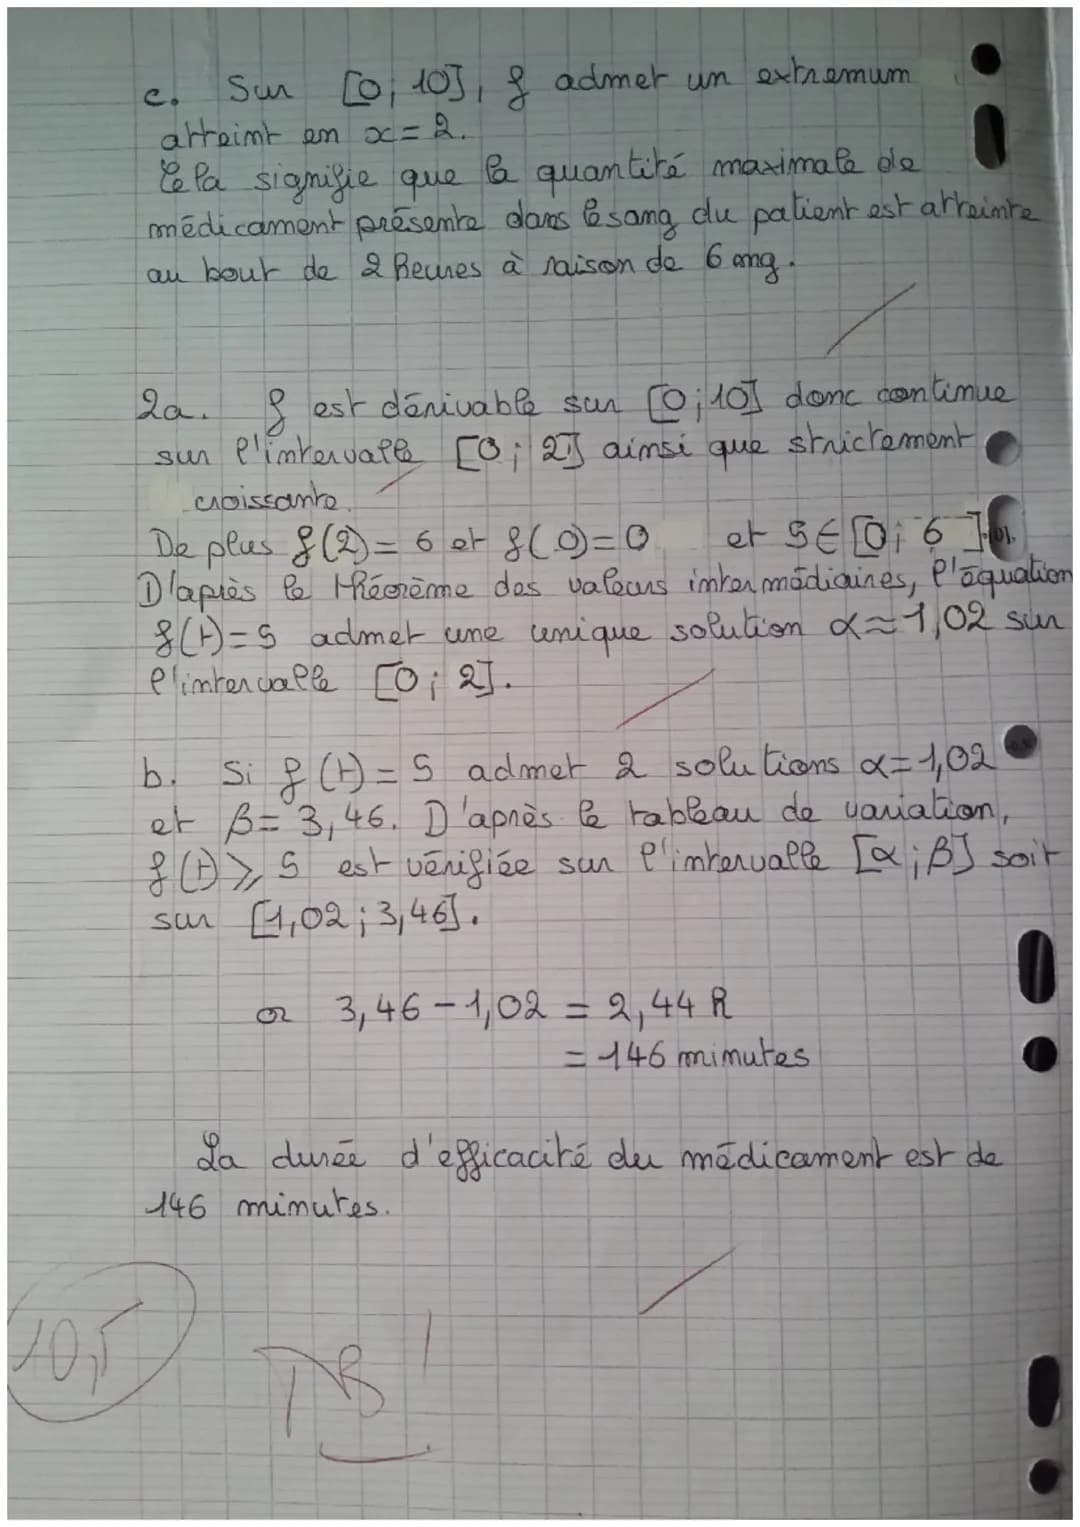 c. Sur [0; 10], f admet un extremum
atteint en x = 2.
Cela signifie que la quantité maximale de
médicament présente dans le sang du patient est atteinte
au bout de 2 heures à raison de 6 mg.
2a. f est dérivable sur [0; 10] donc continue
sur l'intervalle [0; 2] ainsi que strictement
croissante.
De plus f(2) = 6 et f(0) = 0 et 5 ∈ [0; 6]
D'après le théorème des valeurs intermédiaires, l'équation
f(t) = 5 admet une unique solution α ≈ 1,02 sur
l'intervalle [0; 2].
b. Si f(t) = 5 admet 2 solutions α = 1,02
et β = 3,46. D'après le tableau de variation,
f(t) ⩾ 5 est vérifiée sur l'intervalle [α; β] soit
sur [1,02; 3,46].
or 3,46 - 1,02 = 2,44 h
= 146 minutes
La durée d'efficacité du médicament est de
146 minutes.
10,5
TB !